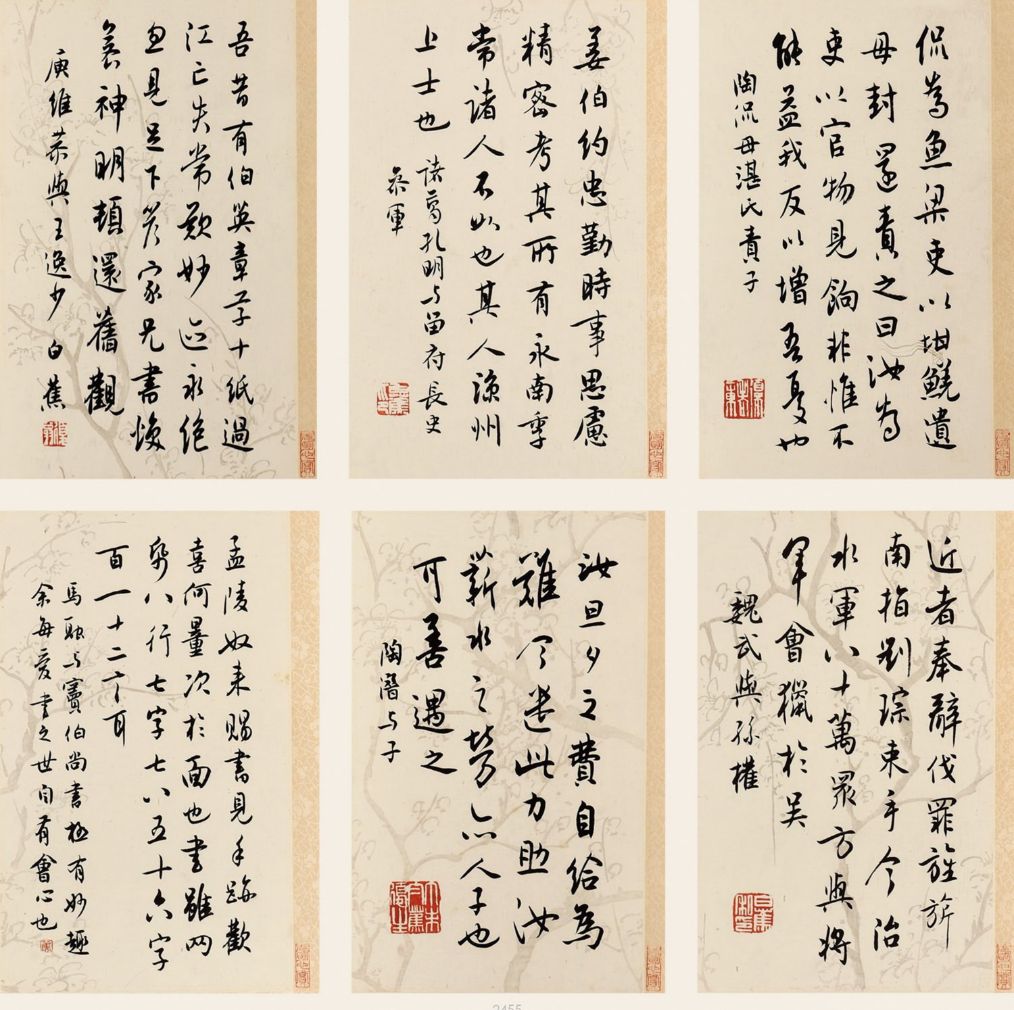 侃為魚梁吏以坩鮺遺
母封還責之曰汝為
吏以官物見餉非惟不
能益我反以增吾憂也
陶侃母湛氏責子
姜伯約忠勤時事思慮
精密考其所有永南季
常諸人不如也其人涼州
上士也
諸葛孔明与留府長史
參軍
吾昔有伯英章草十紙過
江亡失常歎妙迹永絕
忽見足下答家兄書煥
若神明頓還舊觀
庾稚恭與王逸少 白蕉
近者奉辭伐罪旌旂
南指劉琮束手今治
水軍八十萬眾方與將
軍會獵於吳
魏武與孫權
汝旦夕之費自給為
難今遣此力助汝
薪水之勞亦人子也
可善遇之
陶潛与子
孟陵奴来賜書見手跡歡
喜何量次於面也書雖两
帋八行七字七八五十六字
百一十二言耳
馬融与竇伯尚書極有妙趣
余每愛書之世自有會心也
2455